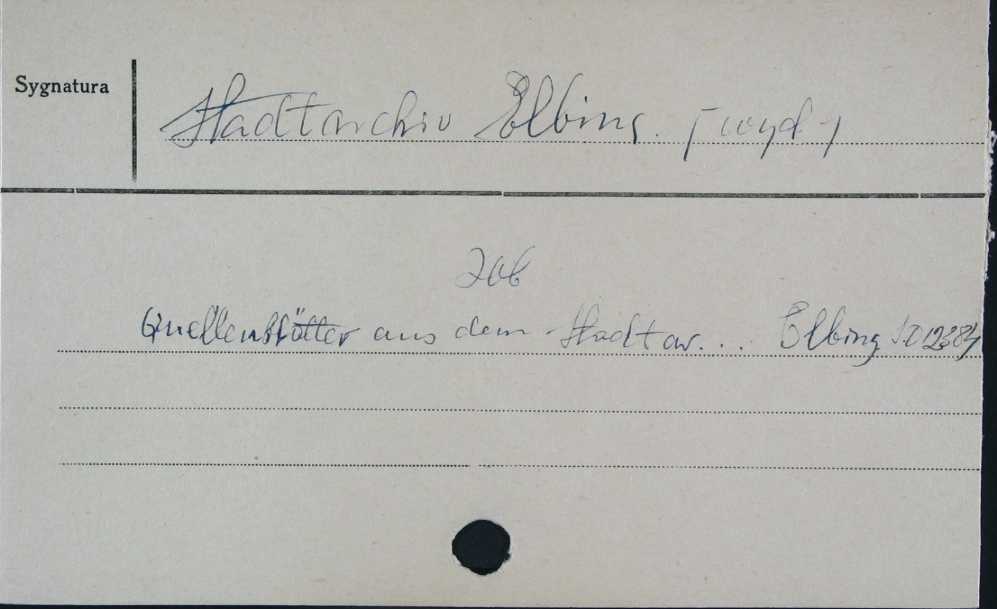 Sygnatura
Stadtarchiv Elbing. [wyd.]
zob
Quellenblätter aus dem Stadtar... Elbing